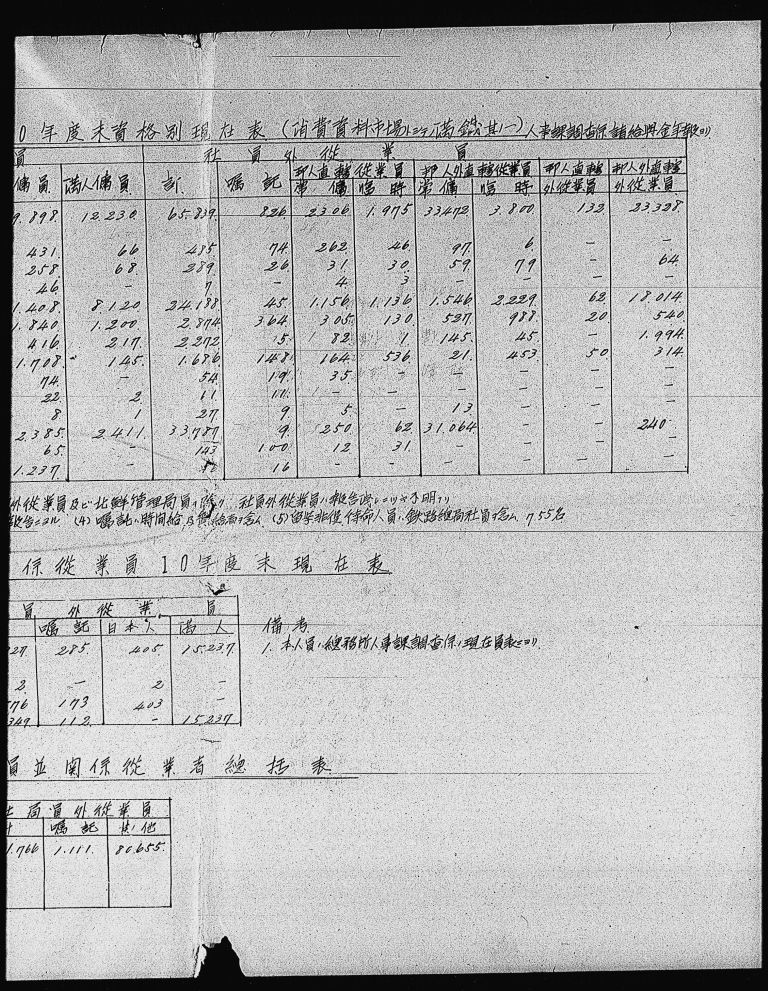 0年度末資格別現在表(消費資料市場トシテノ満鐵其ノ一)人事課調査係諸給與金年報ヨリ
員 社員外從業員
傭員 滿人傭員 計 囑託 邦人直轄從業員 邦人外直轄從業員 邦人直轄 邦人外直轄
常傭 臨時 常傭 臨時 外從業員 外從業員
9.898 12.230 65.839 826 2306 1.975 33472 3.800 132 23.328
431 66 485 74 262 46 97 6 - -
258 68 289 26 31 30 59 79 - 64
46 - 7 - 4 3 - - - -
1.408 8.120 24.188 45 1.156 1.136 1.546 2.229 62 18.014
1.840 1.200 2.874 364 305 130 527 988 20 540
416 217 2.272 5 82 1 145 45 - 1.994
1.708 145 1.686 148 164 536 21 453 50 314
74 - 54 19 35 - - - - -
22 2 11 11 - - - - - -
8 1 27 9 5 - 13 - - -
2.385 2.411 33.787 9 250 62 31.064 - - 240
65 - 143 100 12 31 - - - -
1.237 - 16 - - - - - -
外從業員及ビ北鮮管理局員ヲ除ク 社員外從業員ノ報告 不明
報告 (4)囑託ハ時間給及 含ム (5) 待命人員ハ鉄路總局社員ヲ含ム 755名
係從業員10年度末現在表
員外從業員
囑託 日本人 滿人 備考
27 285 405 15.237 1. 本人員ハ總務所人事課調査係ノ現在員表ニヨリ
2 - 2 -
76 173 403 -
349 112 - 15237
員並関係從業者總括表
局員外從業員
計 囑託 其他
1.766 1.111 80.655